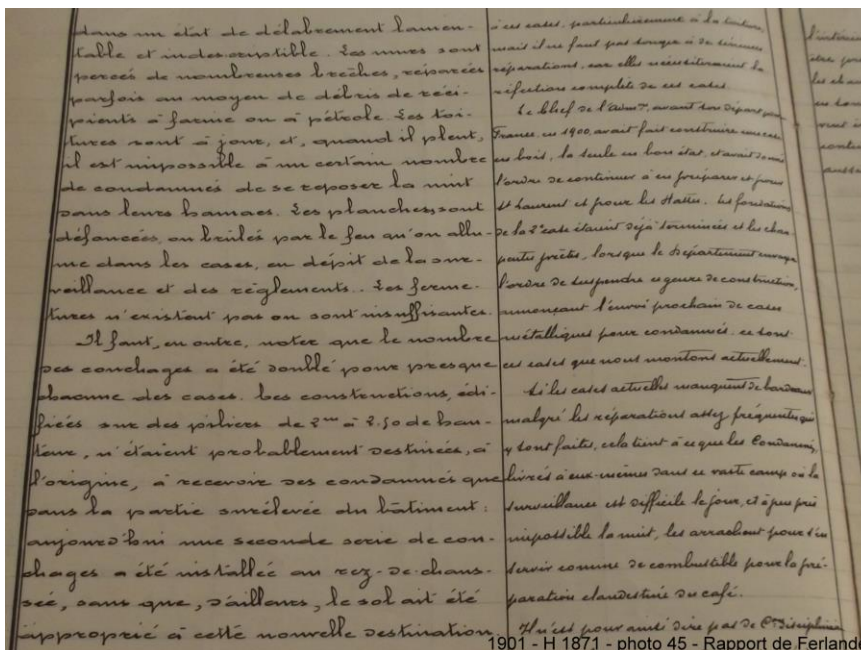 dans un état de délabrement lamen-
table et indescriptible. Les murs sont
percés de nombreuses brèches, réparées
parfois au moyen de débris de réci-
pients à farine ou à pétrole. Les toi-
tures sont à jour, et, quand il pleut,
il est impossible à un certain nombre
de condamnés de se reposer la nuit
dans leurs hamacs. Les planches sont
défoncées, ou brûlés par le feu qu'on allu-
me dans les cases, en dépit de la sur-
veillance et des règlements. Les ferme-
tures n'existent pas ou sont insuffisantes.
Il faut, en outre, noter que le nombre
des couchages a été doublé pour presque
chacune des cases. Les constructions, édi-
fiées sur des piliers de 2m à 2.50 de hau-
teur, n'étaient probablement destinées, à
l'origine, à recevoir des condamnés que
dans la partie surélevée du bâtiment:
aujourd'hui une seconde serie de cou-
chages a été installée au rez-de-chaus-
sée, sans que, d'ailleurs, le sol ait été
approprié à cette nouvelle destination.
à ces cases, particulièrement à la toiture,
mais il ne faut pas songer à de
réparations, car elles nécessiteraient la
réfection complète de ces cases.
Le Chef de l'Admon, avant son départ pour
France en 1900, avait fait construire une case
en bois, la seule en bon état, et avait donné
l'ordre de continuer à en préparer et pour
St Laurent et pour les Hattes. Les fondations
de la 2e case étaient déjà terminées et les char-
pentes prêtes, lorsque le Département envoya
l'ordre de suspendre ce genre de construction,
annonçant l'envoi prochain de cases
métalliques pour condamnés. ce sont
ces cases que nous montons actuellement.
Si les cases actuelles manquent de bardeaux
malgré les réparations assez fréquentes qui
y sont faites, cela tient à ce que les Condamnés,
livrés à eux-mêmes dans ce vaste camp où la
surveillance est difficile le jour, et à peu près
impossible la nuit, les arrachent pour s'en
servir comme de combustible pour la pré-
paration clandestine du café.
Il n'est pour ainsi dire pas de Cie Discipline
1901 - H 1871 - photo 45 - Rapport de Ferlande